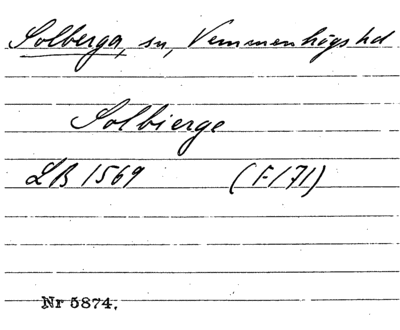 Solberga, sn, Vemmenhögs hd
Solbierge
LB 1569 (F171)
Nr 5874.